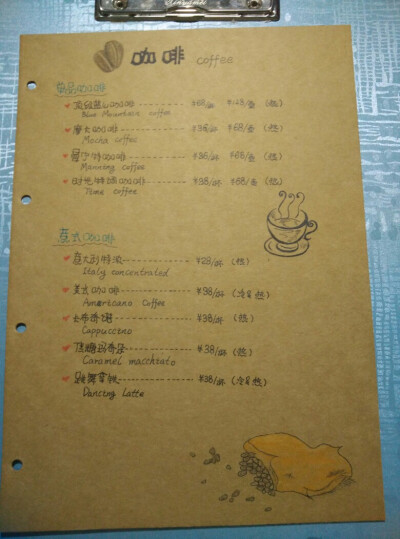 咖啡 coffee
单品咖啡
顶级蓝山咖啡 ¥68/杯 ¥128/壶 (热)
Blue Mountain coffee
摩卡咖啡 ¥36/杯 ¥68/壶 (热)
Mocha coffee
曼特咖啡 ¥36/杯 ¥68/壶 (热)
Manning coffee
时光特调咖啡 ¥38/杯 ¥68/壶 (热)
Time coffee
意式咖啡
意大利特浓 ¥28/杯 (热)
Italy concentrated
美式咖啡 ¥38/杯 (冷&热)
Americano Coffee
卡布奇诺 ¥38/杯 (热)
Cappuccino
焦糖玛奇朵 ¥38/杯 (热)
Caramel macchiato
跳舞拿铁 ¥38/杯 (冷&热)
Dancing Latte